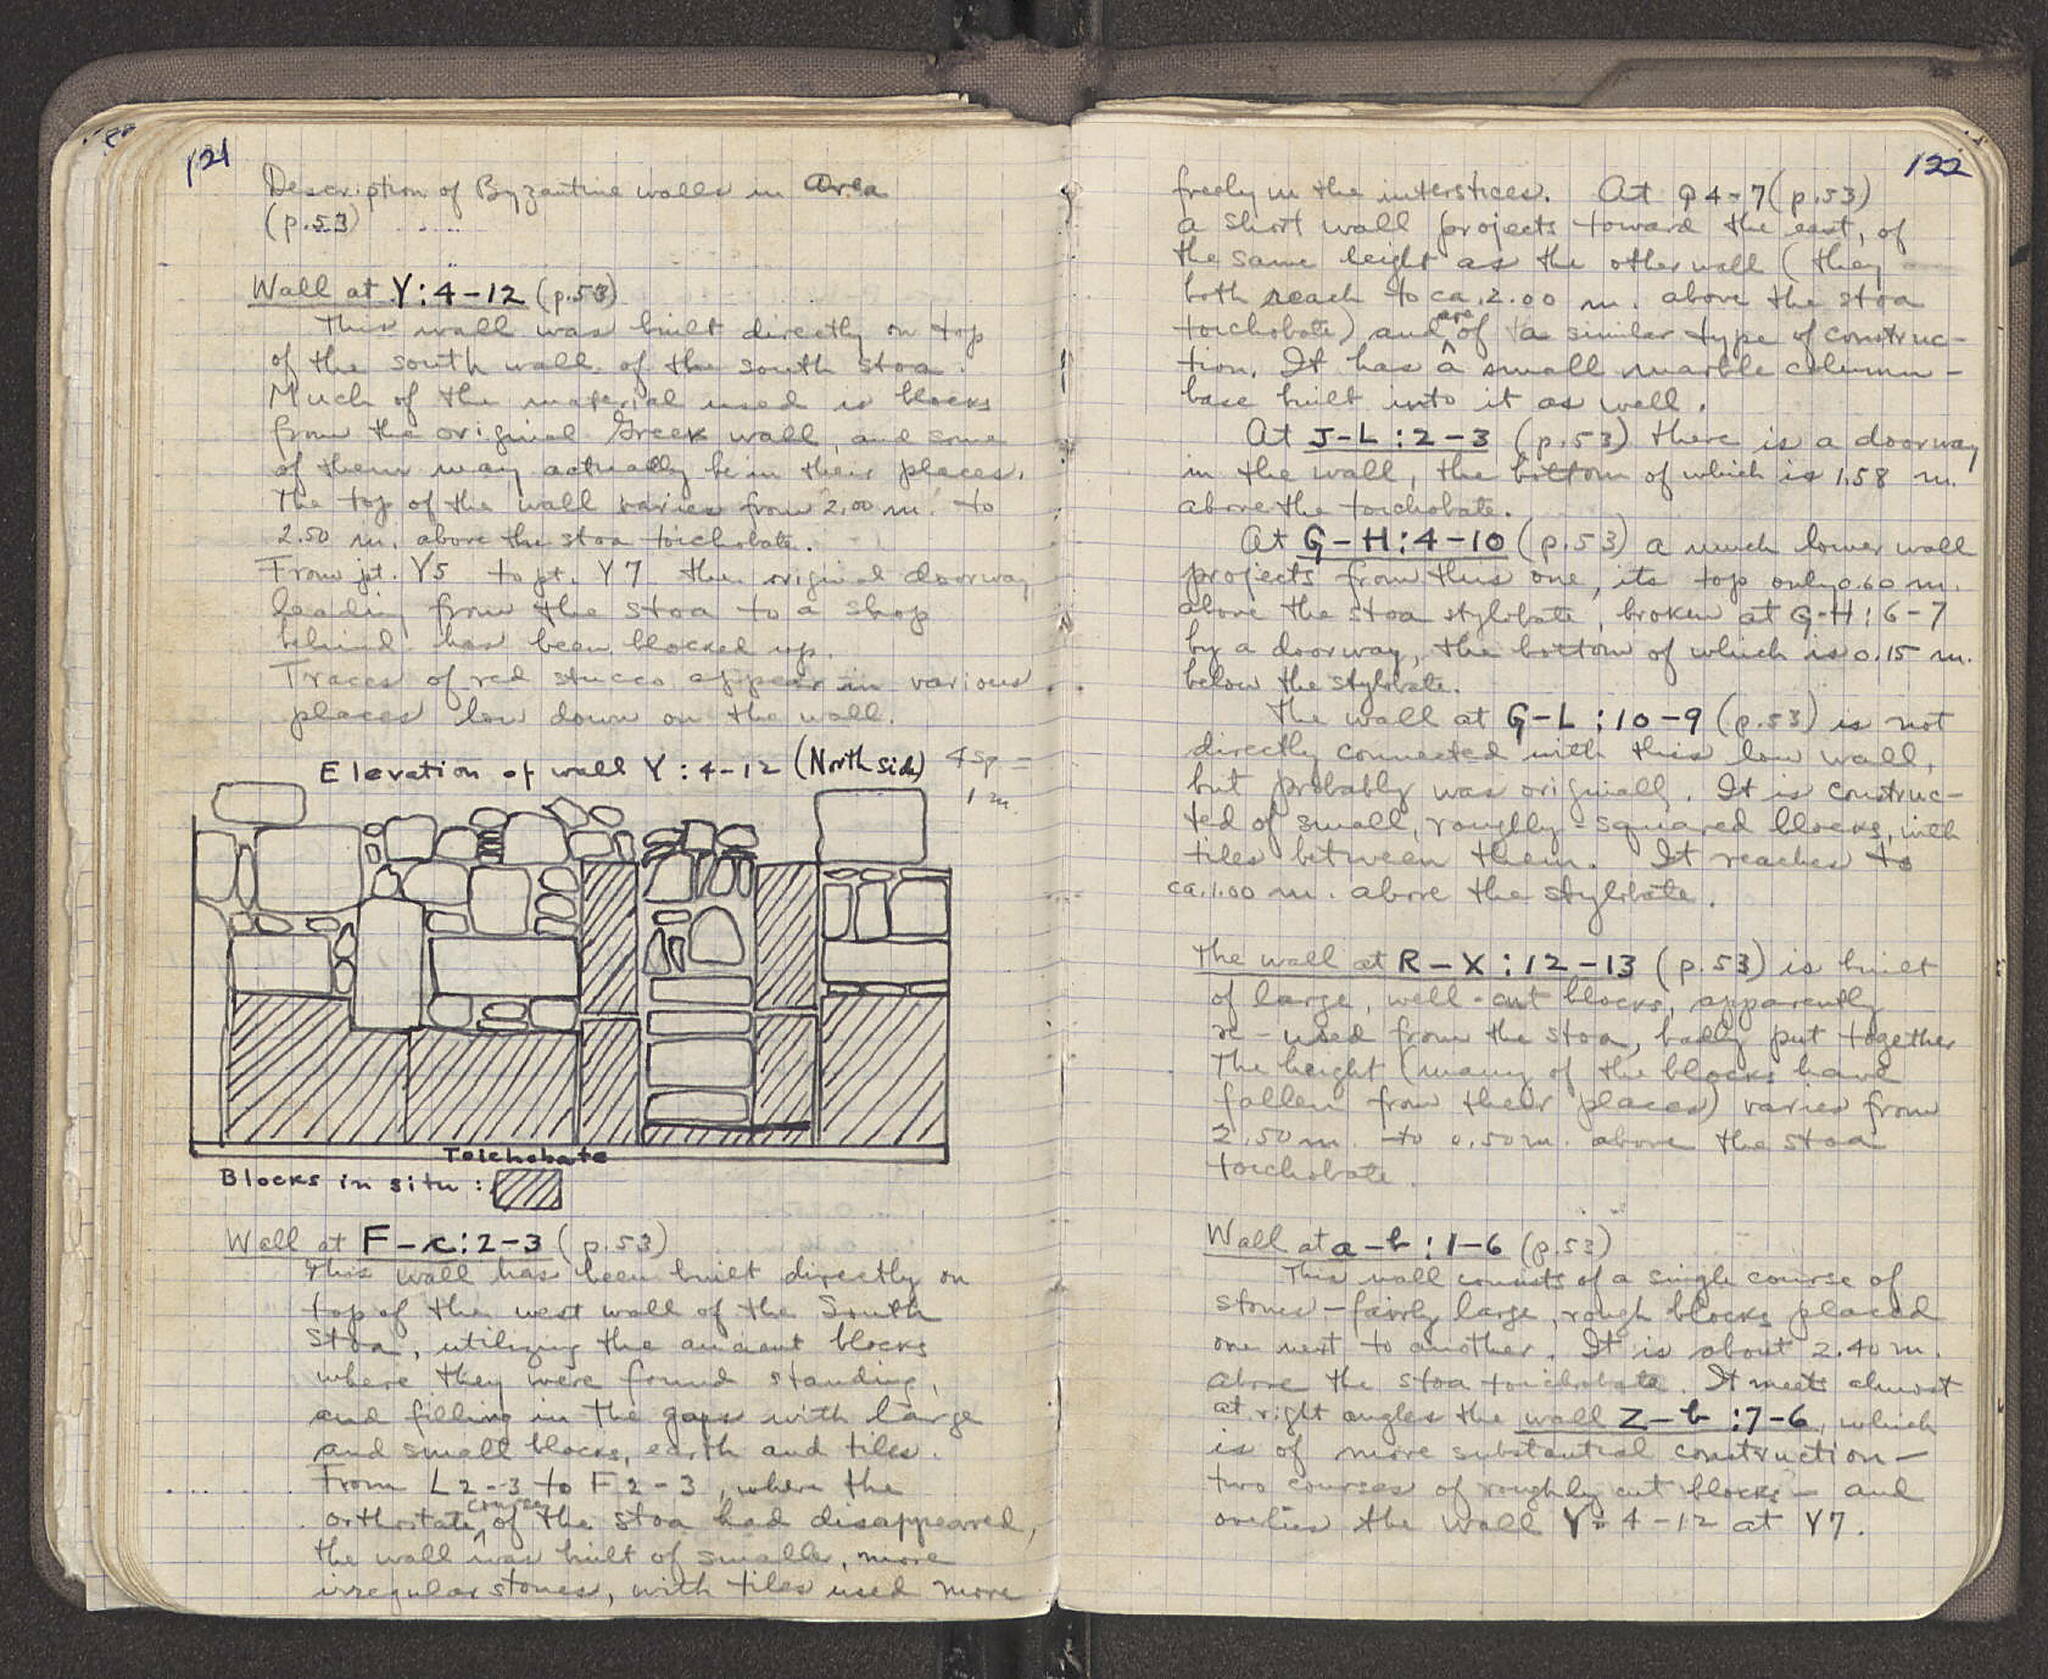 121
Description of Byzantine walls in area
(p.53)
Wall at Y:4-12 (p.53)
This wall was built directly on top
of the south wall of the south stoa.
Much of the material used is blocks
from the original Greek wall, and some
of them may actually be in their places.
The top of the wall varies from 2.00 m. to
2.50 m. above the stoa toichobate.
From pt. Y5 to pt. Y7 the original doorway
leading from the stoa to a shop
behind has been blocked up.
Traces of red stucco appear in various
places low down on the wall.
Elevation of wall Y:4-12 (North side) 4 sp =
1 m.
Toichobate
Blocks in situ:
Wall at F-c:2-3 (p.53)
This wall has been built directly on
top of the west wall of the South
Stoa, utilizing the ancient blocks
where they were found standing,
and filling in the gaps with large
and small blocks, earth and tiles.
From L2-3 to F2-3, where the
orthostate course of the stoa had disappeared,
the wall was built of smaller, more
irregular stones, with tiles used more
122
freely in the interstices. At Q4-7 (p.53)
a short wall projects toward the east, of
the same height as the other wall (they
both reach to ca. 2.00 m. above the stoa
toichobate) and are of a similar type of construc-
tion. It has a small marble column-
base built into it as well.
At J-L:2-3 (p.53) there is a doorway
in the wall, the bottom of which is 1.58 m.
above the toichobate.
At G-H:4-10 (p.53) a much lower wall
projects from this one, its top only 0.60 m.
above the stoa stylobate, broken at G-H:6-7
by a doorway, the bottom of which is 0.15 m.
below the stylobate.
The wall at G-L:10-9 (p.53) is not
directly connected with this low wall,
but probably was originally. It is construc-
ted of small, roughly-squared blocks, with
tiles between them. It reaches to
ca. 1.00 m. above the stylobate.
The wall at R-X:12-13 (p.53) is built
of large, well-cut blocks, apparently
re-used from the stoa, badly put together
The height (many of the blocks have
fallen from their places) varies from
2.50 m. to 0.50 m. above the stoa
toichobate.
Wall at a-b:1-6 (p.53)
This wall consists of a single course of
stones - fairly large, rough blocks placed
one next to another. It is about 2.40 m.
above the stoa toichobate. It meets almost
at right angles the wall Z-b:7-6, which
is of more substantial construction -
two courses of roughly cut blocks - and
overlies the wall Y:4-12 at Y7.